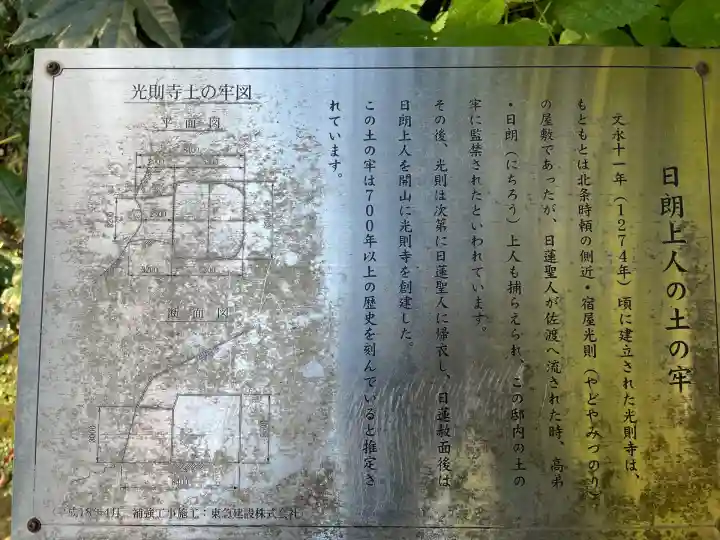 日朗上人の土の牢
文永十一年(1274年)頃に建立された光則寺は、
もともとは北条時頼の側近・宿屋光則(やどやみつのり)
の屋敷であったが、日蓮聖人が佐渡へ流された時、高弟
・日朗(にちろう)上人も捕らえられ、この邸内の土の
牢に監禁されたといわれています。
その後、光則は次第に日蓮聖人に帰衣し、日蓮赦面後は
日朗上人を開山に光則寺を創建した。
この土の牢は700年以上の歴史を刻んでいると推定さ
れています。
光則寺土の牢図
平面図
断面図
平成18年4月 補強工事施工:東急建設株式会社